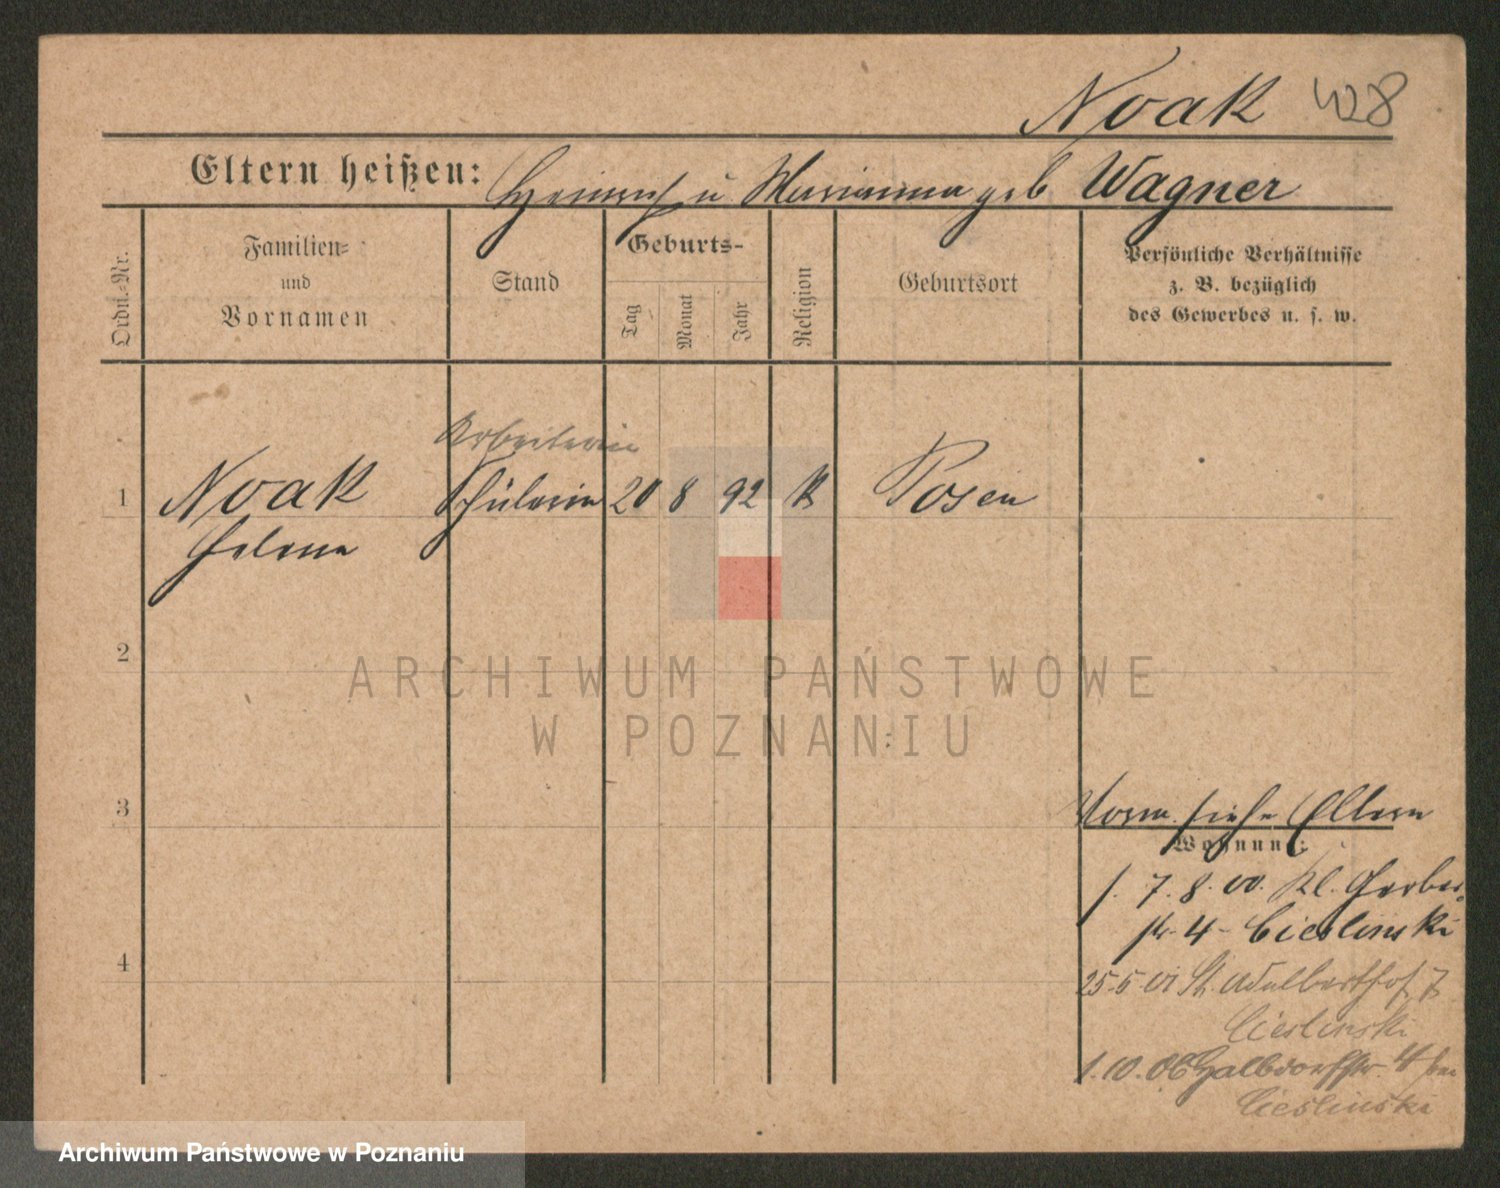 Noak 428
Eltern heißen: Heinrich u Marianna geb Wagner
Ordn.-Nr.
Familien-
und
Vornamen
Stand
Geburts-
Tag
Monat
Jahr
Religion
Geburtsort
Persönliche Verhältnisse
z. B. bezüglich
des Gewerbes u. s. w.
Arbeiterin
1 Noak Schülerin 20 8 92 K Posen
Helena
2
3
4
Vorm. siehe Eltern
Wohnung:
7. 8. 00. Kl. Gerber-
str. 4 - Cieslinski
25 5 01 St. Adalberthof 7
Cieslinski
1. 10. 06 Halbdorfstr. 4 bei
Cieslinski
ARCHIWUM PAŃSTWOWE
W POZNANIU
Archiwum Państwowe w Poznaniu